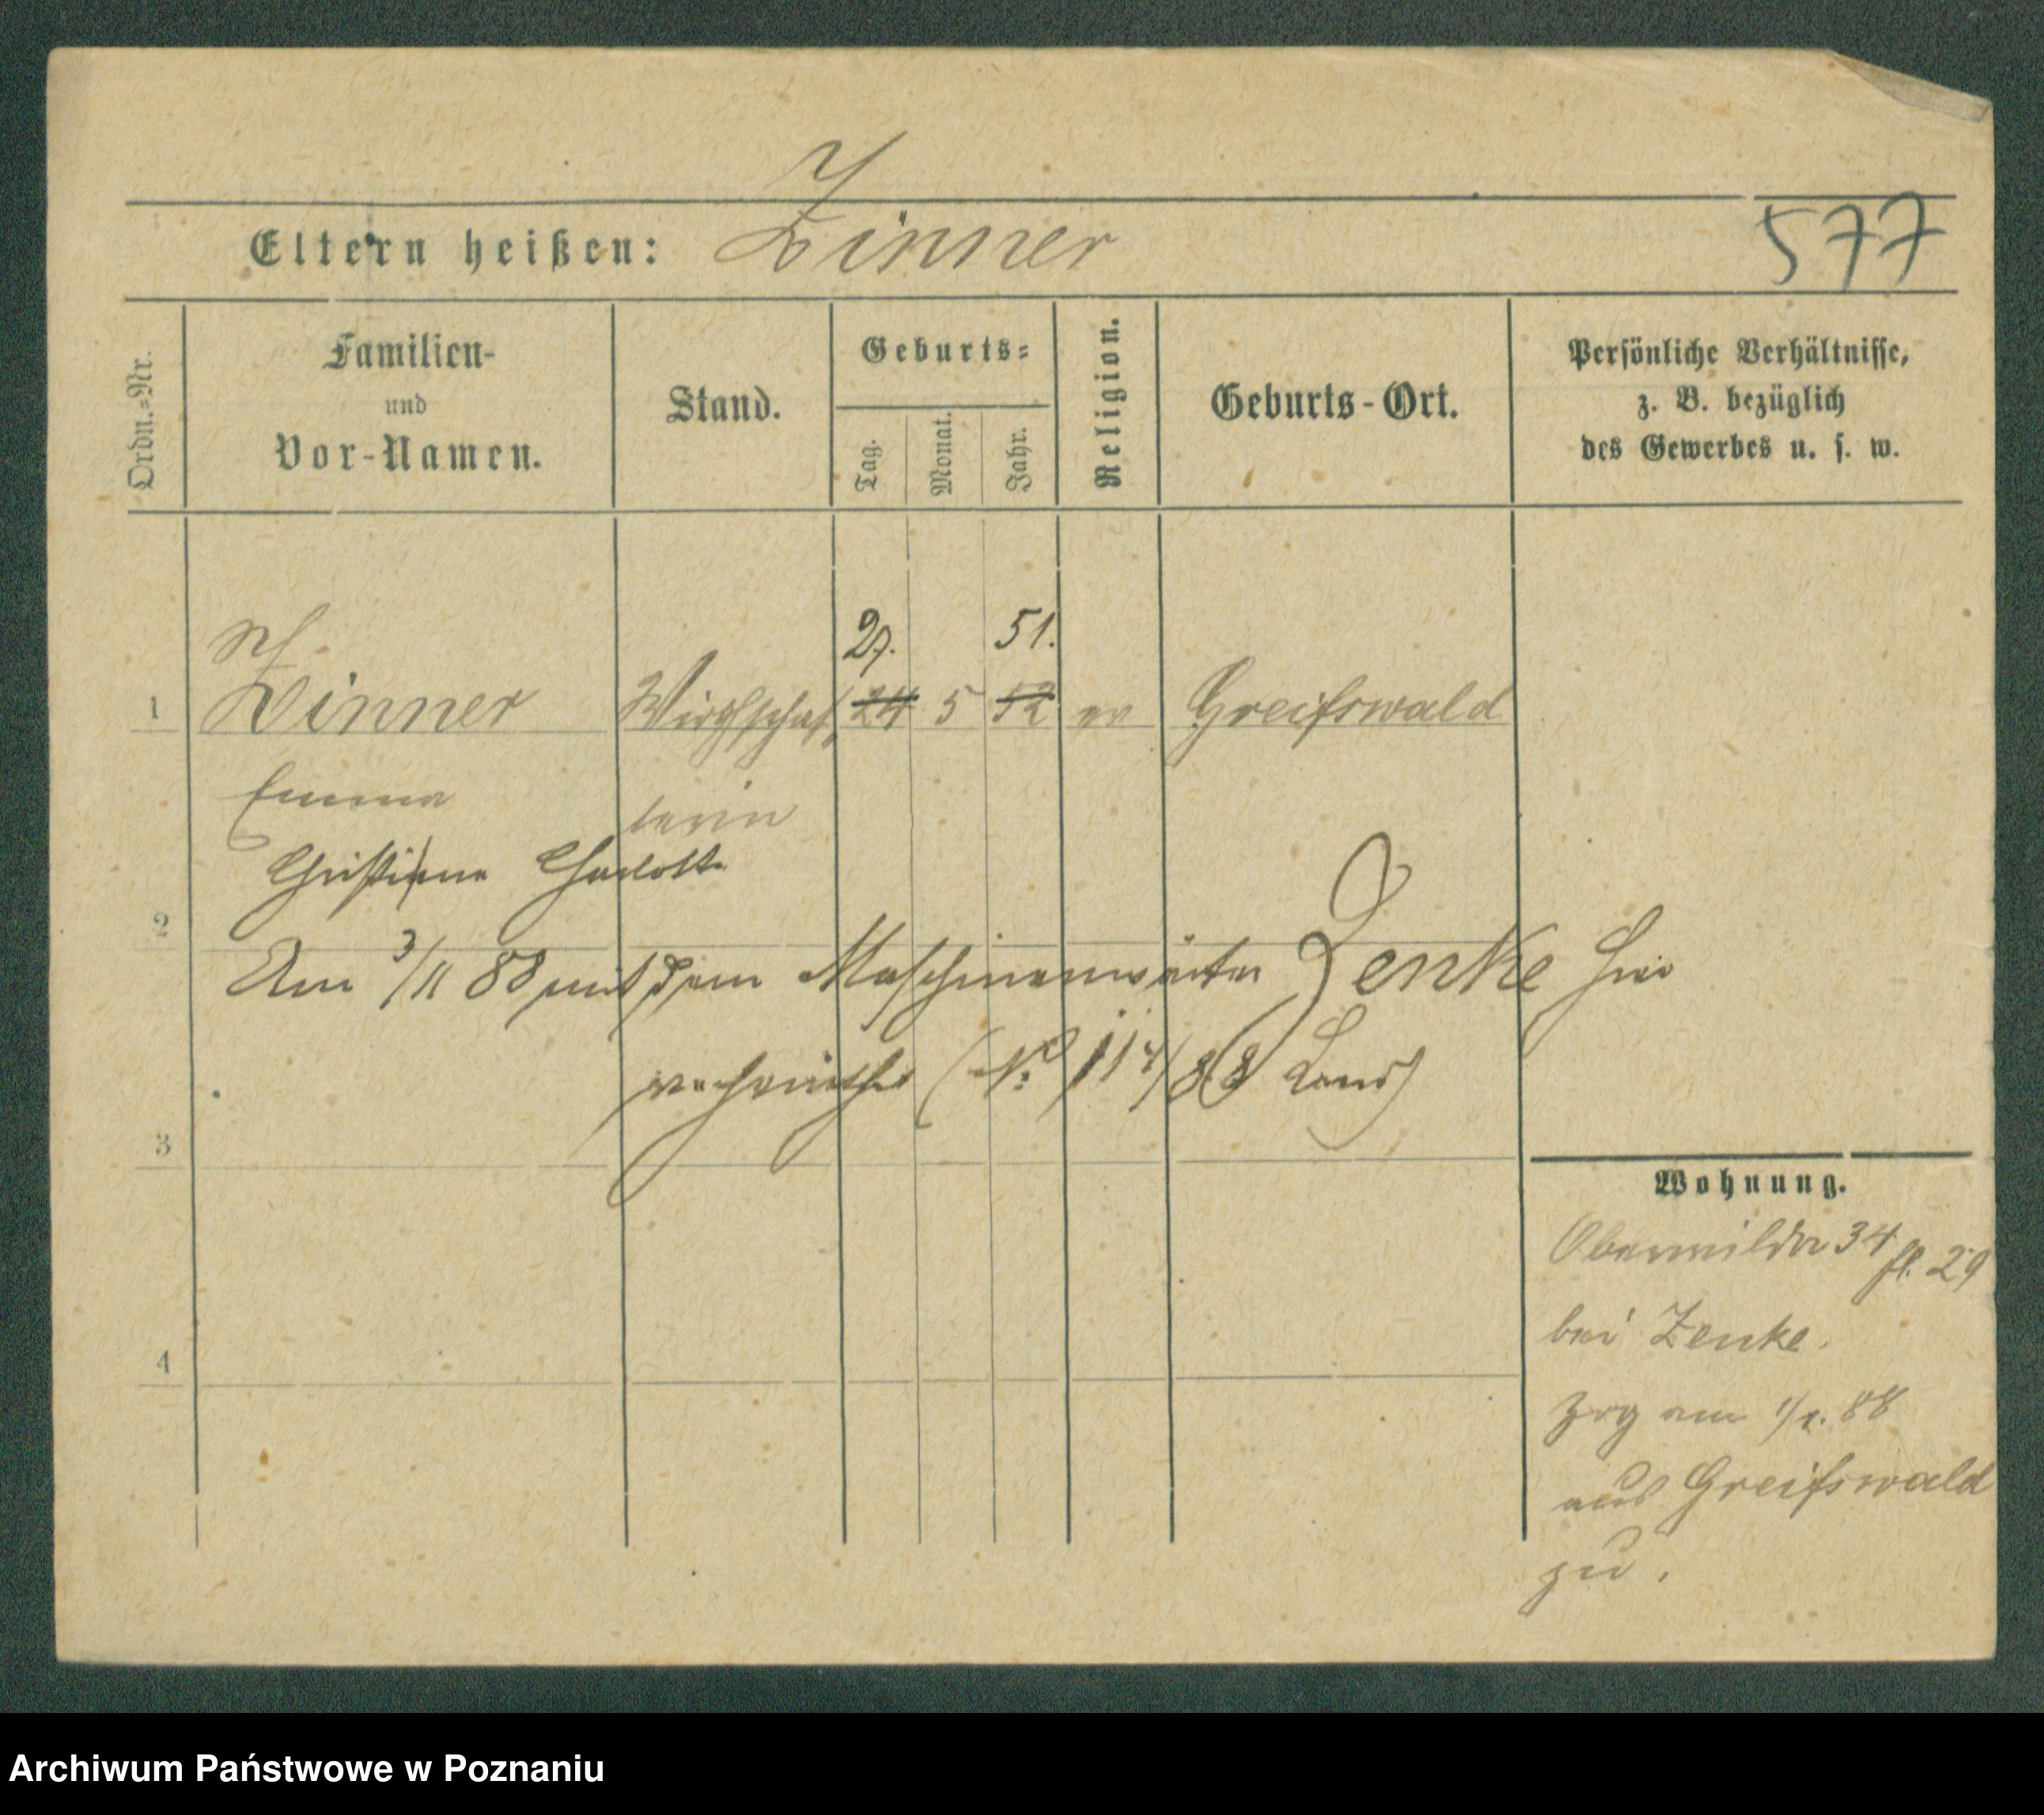 Eltern heißen: Zinner
577
Ordn.-Nr.
Familien-
und
Vor-Namen.
Stand.
Geburts-
Tag.
Monat.
Jahr.
Religion.
Geburts-Ort.
Persönliche Verhältnisse,
z. B. bezüglich
des Gewerbes u. s. w.
27. 51.
1 Zinner Wirthschaf 24 5 52 ev Greifswald
Emma terin
Christiane Charlotte
2
Am 3/11 88 mit dem Maschinenwärter Zenke hier
verheirathet (No 114/88 Land)
3
Wohnung.
Oberwilda 34 fl. 29
bei Zenke.
4
Zzg am 1/1. 88
aus Greifswald
zu.
Archiwum Państwowe w Poznaniu